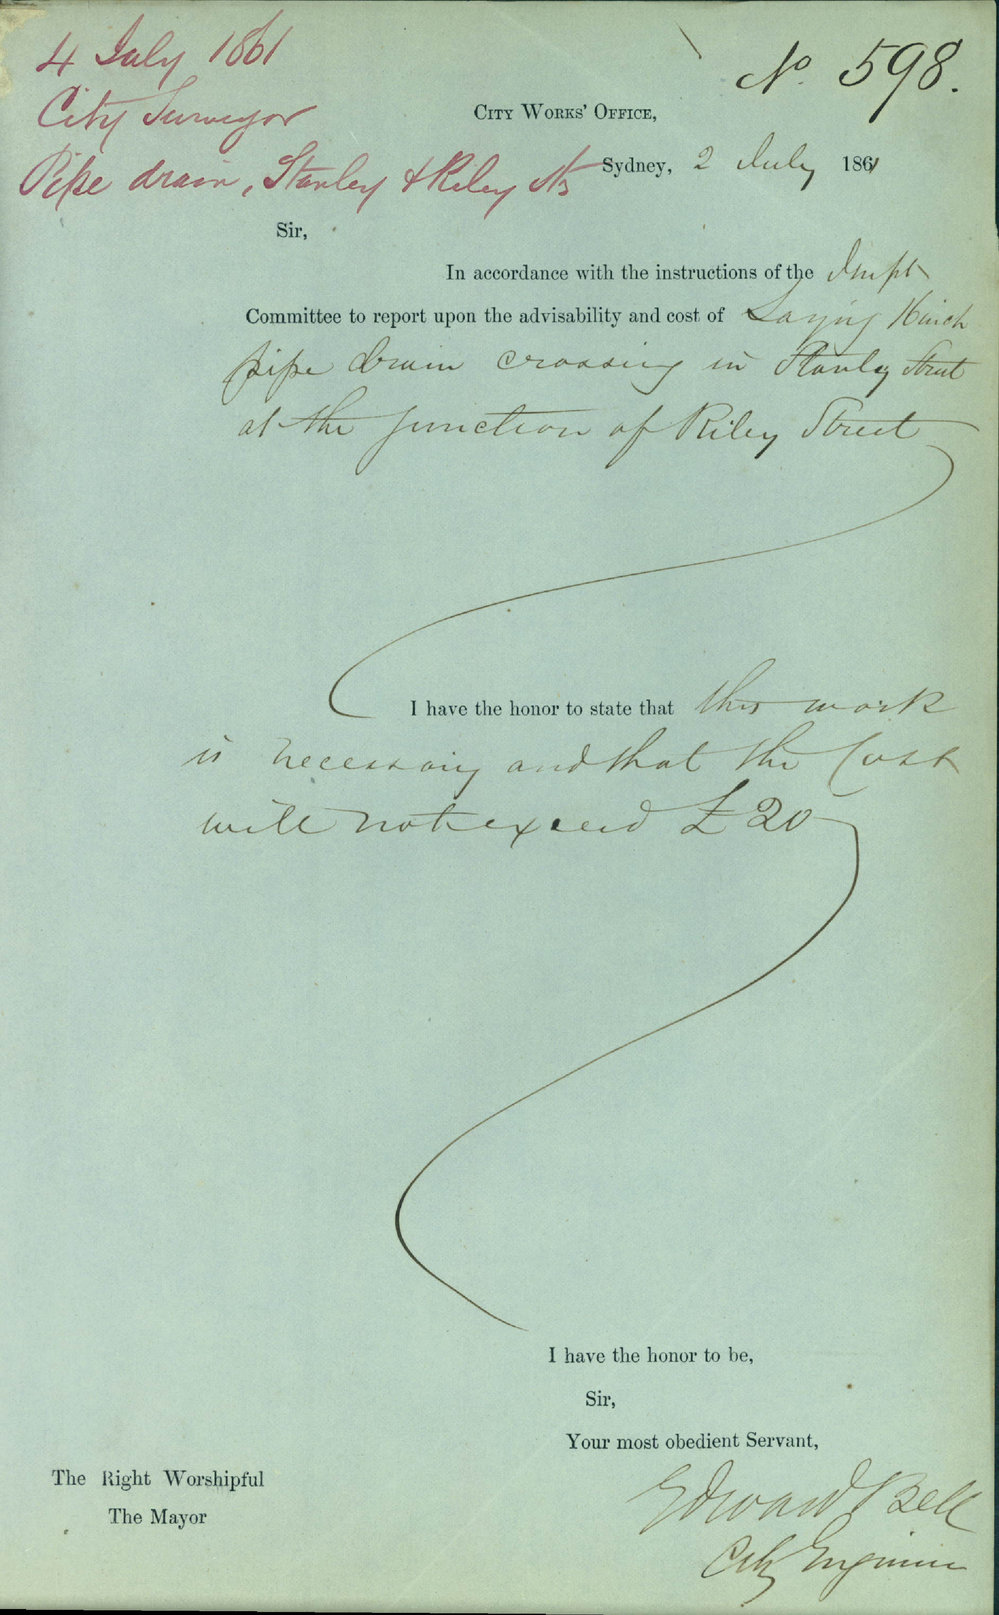 4 July 1861
No 598.
City Surveyor
CITY WORKS' OFFICE,
Pipe drain, Stanley & Riley Sts
Sydney, 2 July 1861
Sir,
In accordance with the instructions of the Impt
Committee to report upon the advisability and cost of Laying inch
pipe drain crossing in Stanley Street
at the junction of Riley Street
I have the honor to state that this work
is necessary and that the Cost
will not exceed £20
I have the honor to be,
Sir,
Your most obedient Servant,
The Right Worshipful
The Mayor
Edward Bell
City Engineer